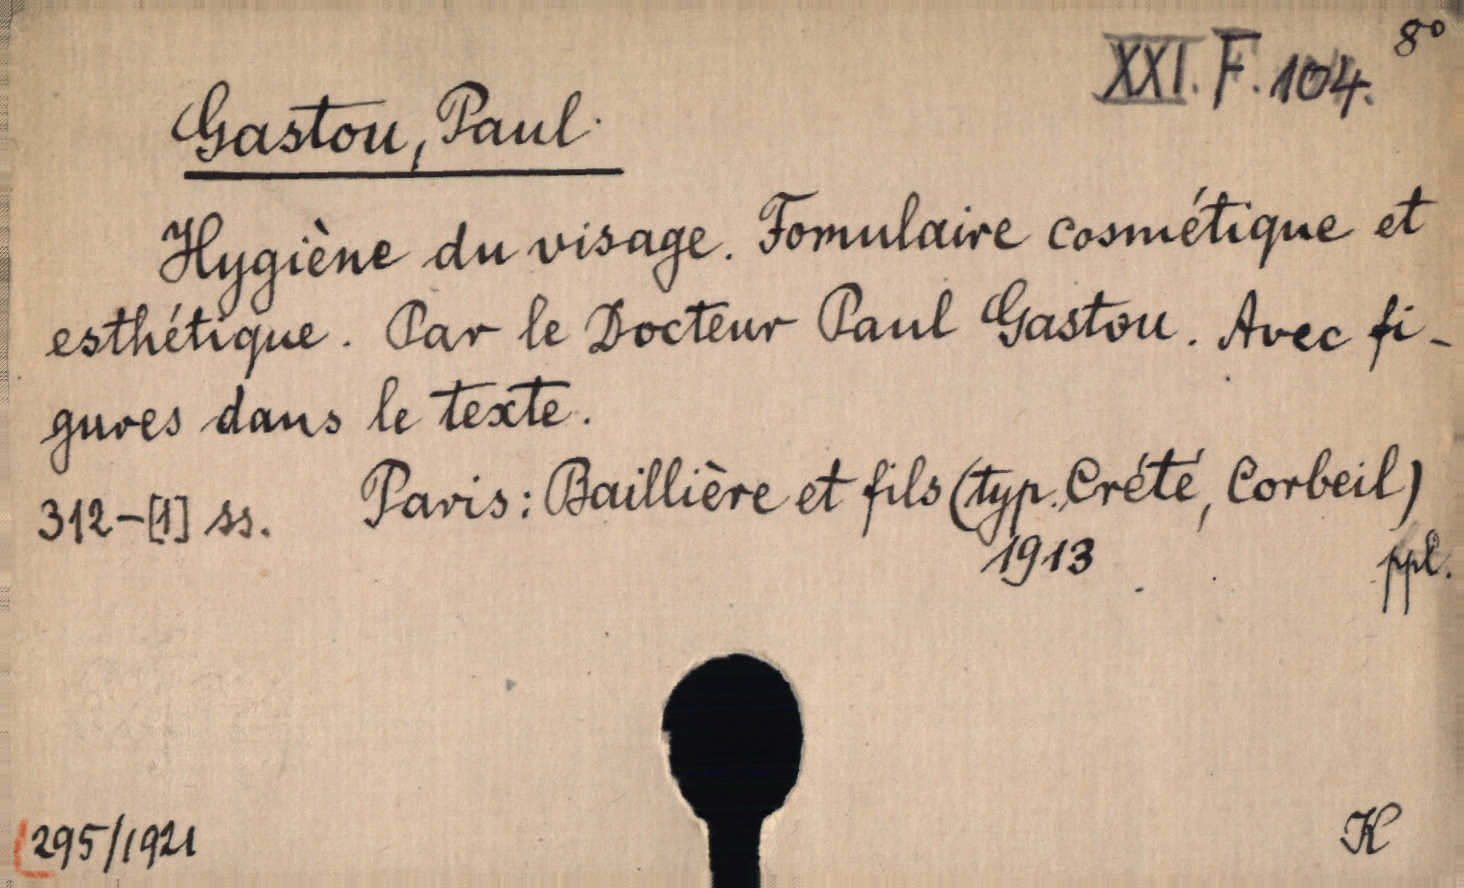 XXI. F. 104. 8°
Gastou, Paul.
Hygiène du visage. Fomulaire cosmétique et
esthétique. Par le Docteur Paul Gastou. Avec fi-
gures dans le texte.
312-[1] ss. Paris: Baillière et fils (typ. Crété, Corbeil)
1913 ppl.
295/1921 K